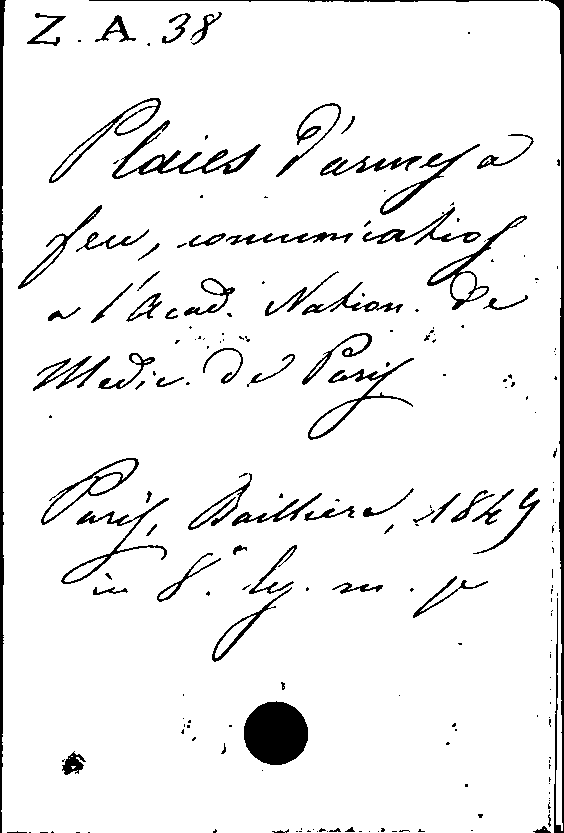 Z. A. 38
Plaies d'armes a
feu, comunication
a l'Acad. Nation. de
Medic. de Paris
Paris, Baillière, 1849
in 8.° leg. m. p